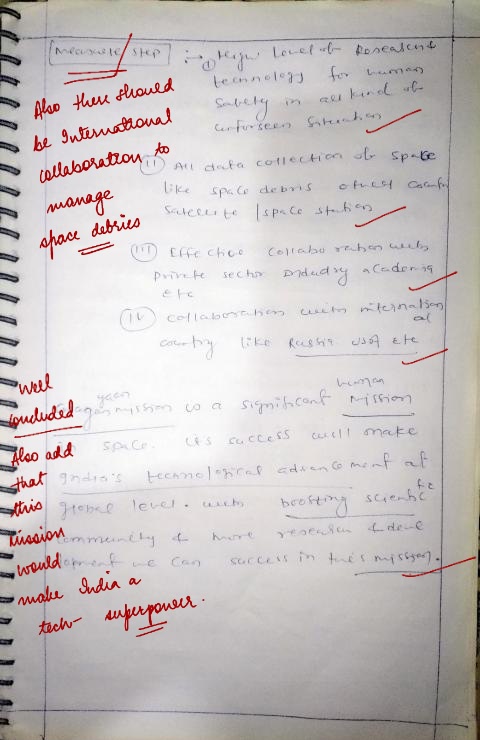 Measure/Step :→ ① High level of Research &
technology for human
safety in all kind of
unforseen situation
Also there should
be International
collaboration to
manage
space debries
(II) All data collection of space
like space debris other countr
satellite / space station
(III) Effective collaboration with
private sector industry academia
etc
(IV) collaboration with internation
al
country like Russia USA etc
Well
concluded
Also add
that
this
mission
would
make India a
tech- superpower.
yaan human
Gagan mission is a significant mission
in space. its success will make
India's technological advancement at
global level. with boosting scientific
community & more research & deve
lopment we can success in this mission.